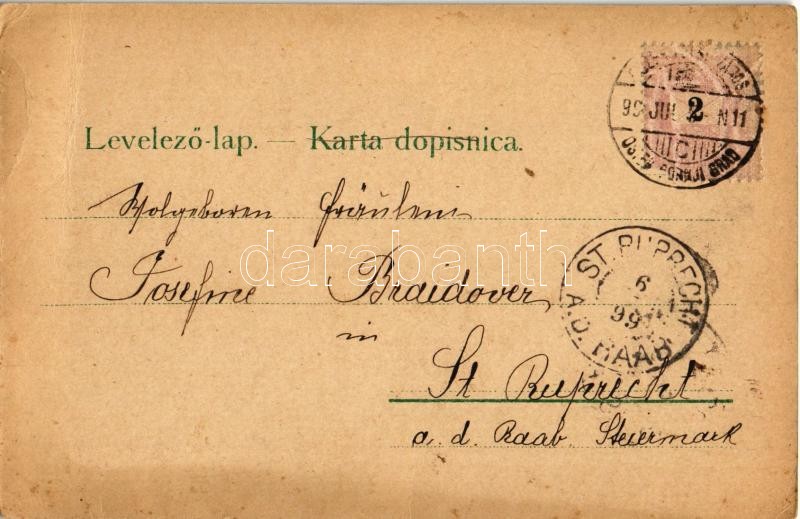 99 JUL 2 N11
C
GORNJI GRAD
Levelező-lap. — Karta dopisnica.
Wolgeboren Fräulein
darabanth
Josefine Braidover
in
ST. RUPRECHT
6
99
A.D. RAAB
St Ruprecht
a. d. Raab. Steiermark